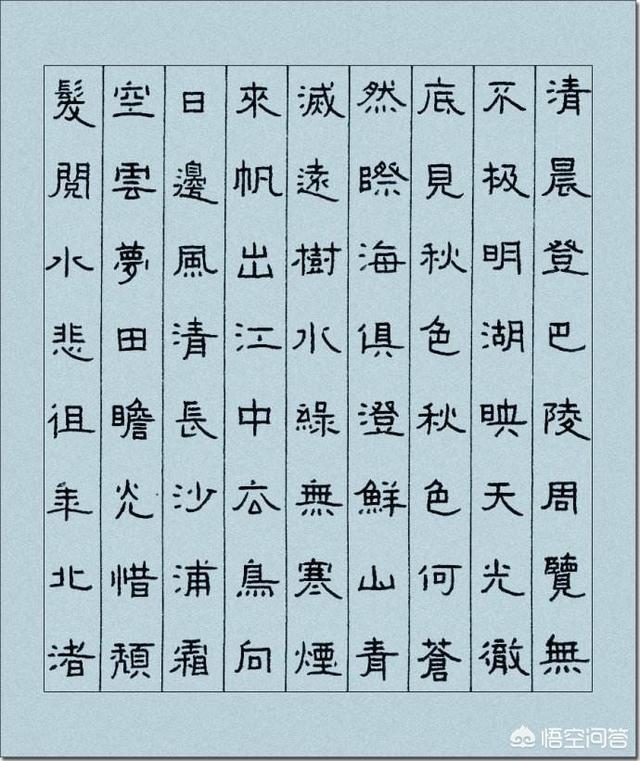 清晨登巴陵周覽無
不极明湖映天光徹
底見秋色秋色何蒼
然際海俱澄鮮山青
滅遠樹水綠無寒煙
來帆出江中去鳥向
日邊風清長沙浦霜
空雲夢田瞻光惜頹
髮閱水悲徂年北渚
悟空问答